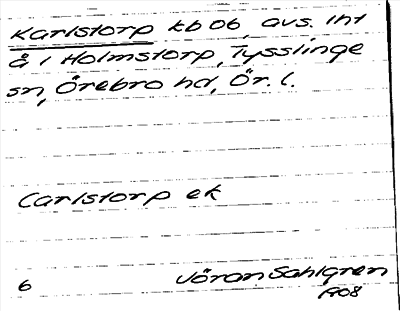 Karlstorp kb 06, avs. int
å 1 Holmstorp, Tysslinge
sn, Örebro hd, Ör. l.
Carlstorp ek
Jöran Sahlgren
6
1908